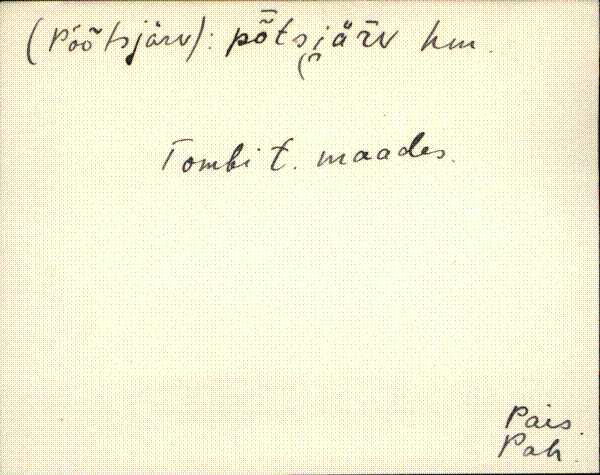 (Põõtsjärv): pȭtsjäŕv hm.
Tombi t. maades.
Pais
Pah.